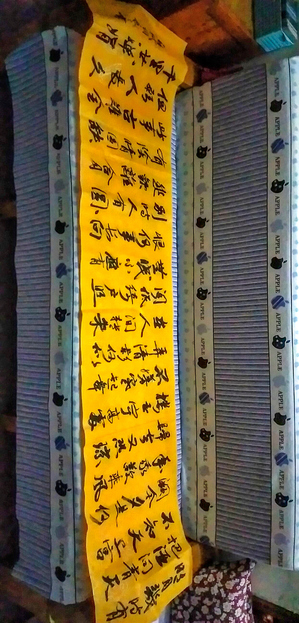 明月幾時有
把酒問青天
不知天上宮
闕今夕是何
年我欲乘風
歸去又恐瓊
樓玉宇高處
不勝寒起舞
弄清影何似
在人間轉朱
閣低綺戶照
無眠不應有
恨何事長向
別時圓人有
悲歡離合月
有陰晴圓缺
此事古難全
但願人長久
千里共嬋娟
APPLE
APPLE
APPLE